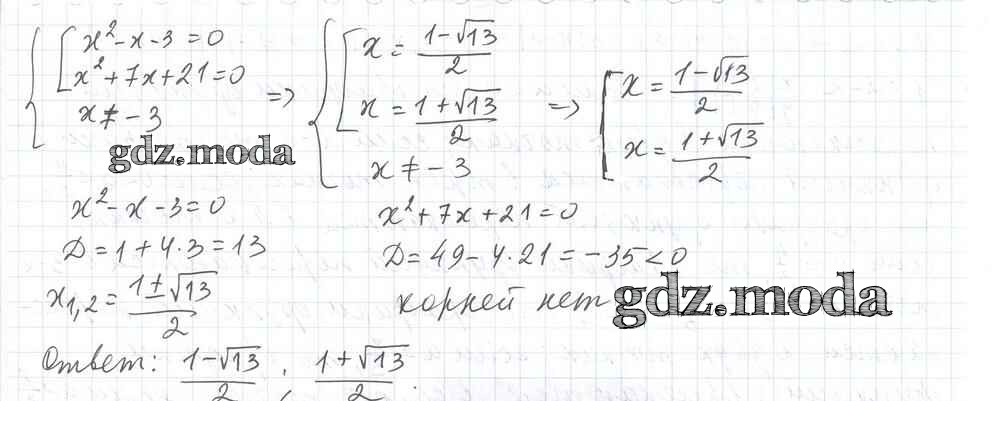 x² - x - 3 = 0
x² + 7x + 21 = 0
x ≠ -3
=>
x = (1-√13)/2
x = (1+√13)/2
x ≠ -3
=>
x = (1-√13)/2
x = (1+√13)/2
gdz.moda
x² - x - 3 = 0
D = 1 + 4·3 = 13
x1,2 = (1±√13)/2
x² + 7x + 21 = 0
D = 49 - 4·21 = -35 < 0
корней нет
gdz.moda
Ответ: (1-√13)/2 ; (1+√13)/2.